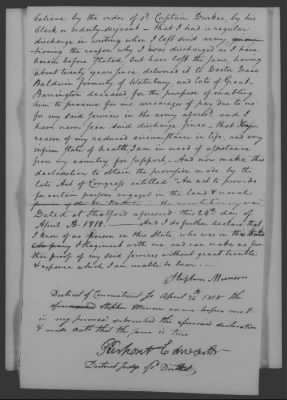 believe by the order of sd Captain Burke by his
Clerk or orderly-sergeant – that I had a regular
discharge in writing when I left said army
-tioning the reason why I was discharged as I have
herein before stated but have lost the same, having
about twenty years since delivered it to Doctor Isaac
Baldwin formerly of Waterbury and late of Great-
Barrington deceased for the purpose of enabling
him to procure for me arrearages of pay due to me
for my said services in the army aforesd and I
have never seen said discharge since – that by
reason of my reduced circumstances in life, and my
infirm state of health I am in need of assistance
from my country for support – And now make this
declaration to obtain the provision made by the
late Act of Congress entitled "An act to provide
for certain persons engaged in the land & naval
service of the in the revolutionary war
Dated at Stratford aforesaid this 24th day of
April AD. 1818. And I do further declare that
I know of no person in this State who was in the
company & Regiment with me and can make no fur-
ther proof of my said services without great trouble
& expense which I am unable to bear. –
Stephen Munson
District of Connecticut ss April 24th 1818 the
Stephen Munson came before me &
in my presence subscribed the aforesaid declaration
& made oath that the same is true
Pierpont Edwards
District Judge sd District